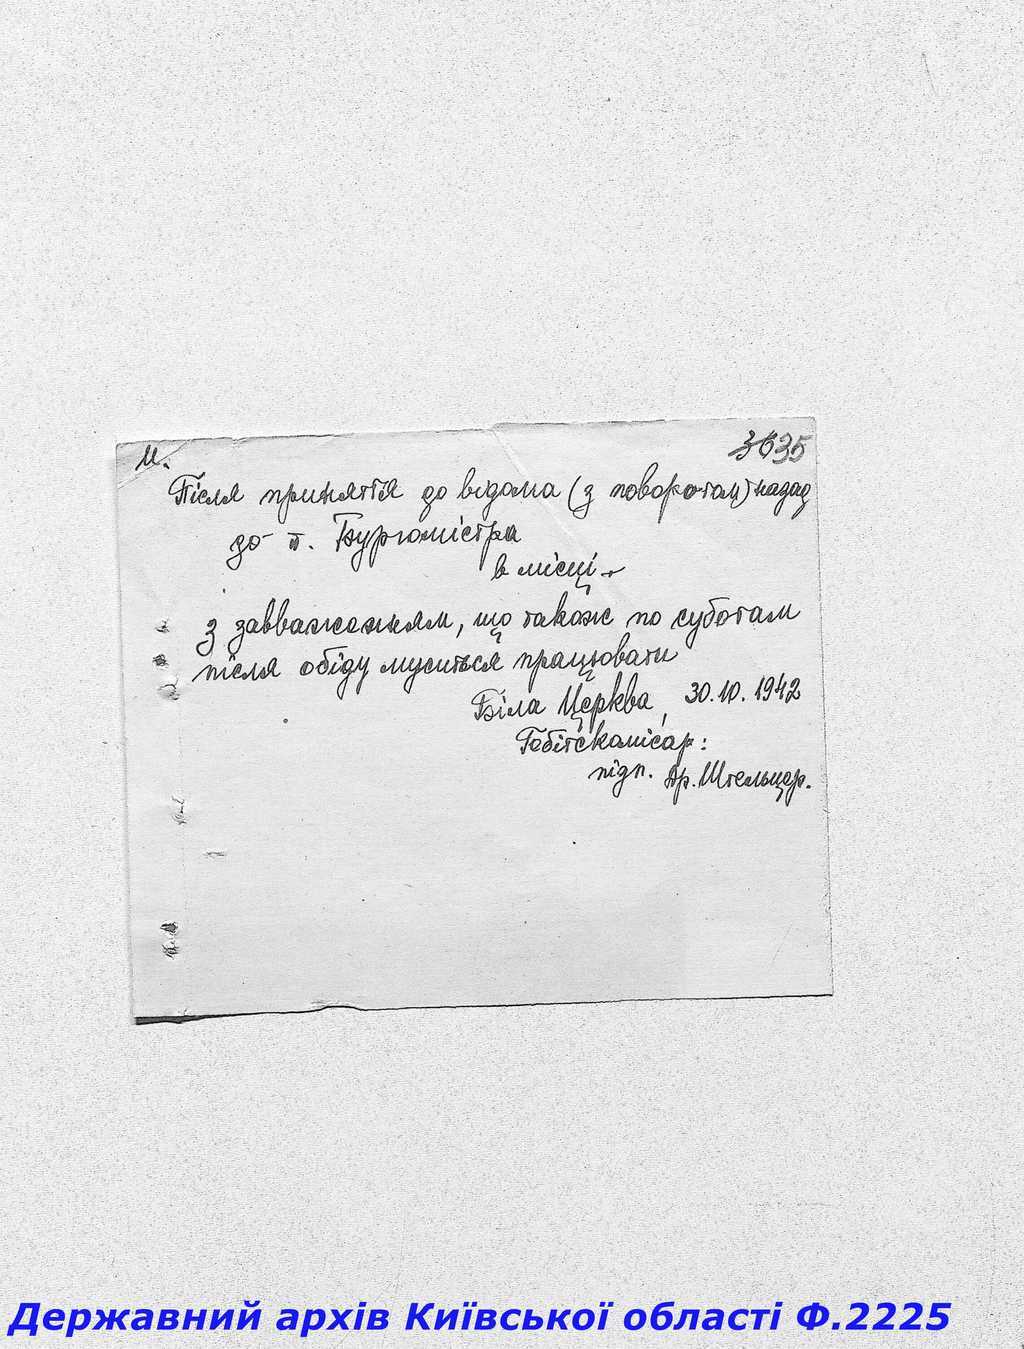 И.
35
Після приняття до відома (з поворотом) назад
до п. Бургомістра
в місці.
з завваженням, що також по суботам
після обіду муситься працювати
Біла Церква, 30.10.1942
Гебітскомісар:
підп. Др. Штельцер.
Державний архів Київської області Ф.2225